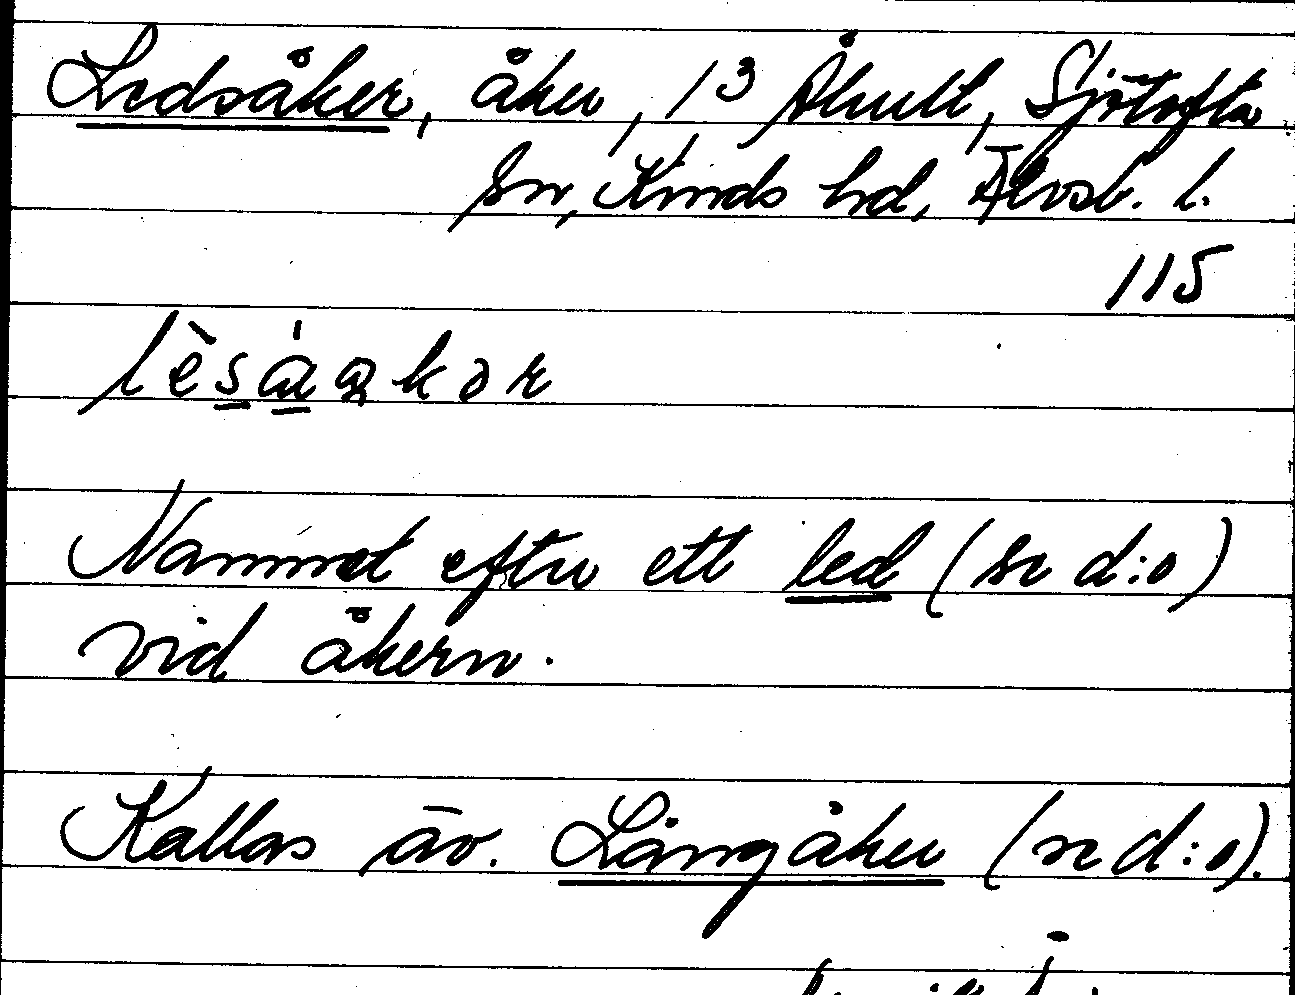 Ledsåker, åker, 1³ Åhult, Sjötofta
sn, Kinds hd, Älvsb. l.
115
lèsákər
Namnet efter ett led (se d:o)
vid åkern.
Kallas äv. Långåker (se d:o).